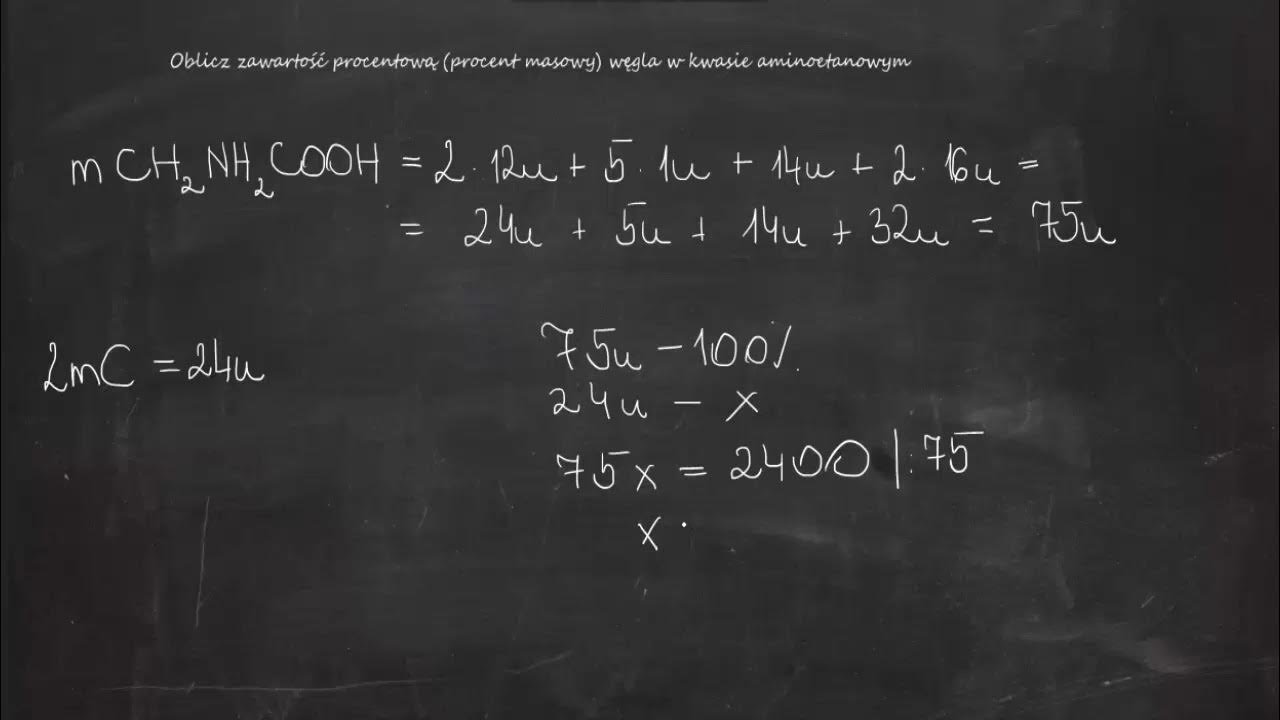 Oblicz zawartość procentową (procent masowy) węgla w kwasie aminoetanowym
m CH₂NH₂COOH = 2·12u + 5·1u + 14u + 2·16u =
= 24u + 5u + 14u + 32u = 75u
2mC = 24u
75u – 100%
24u – x
75x = 2400 |:75
x